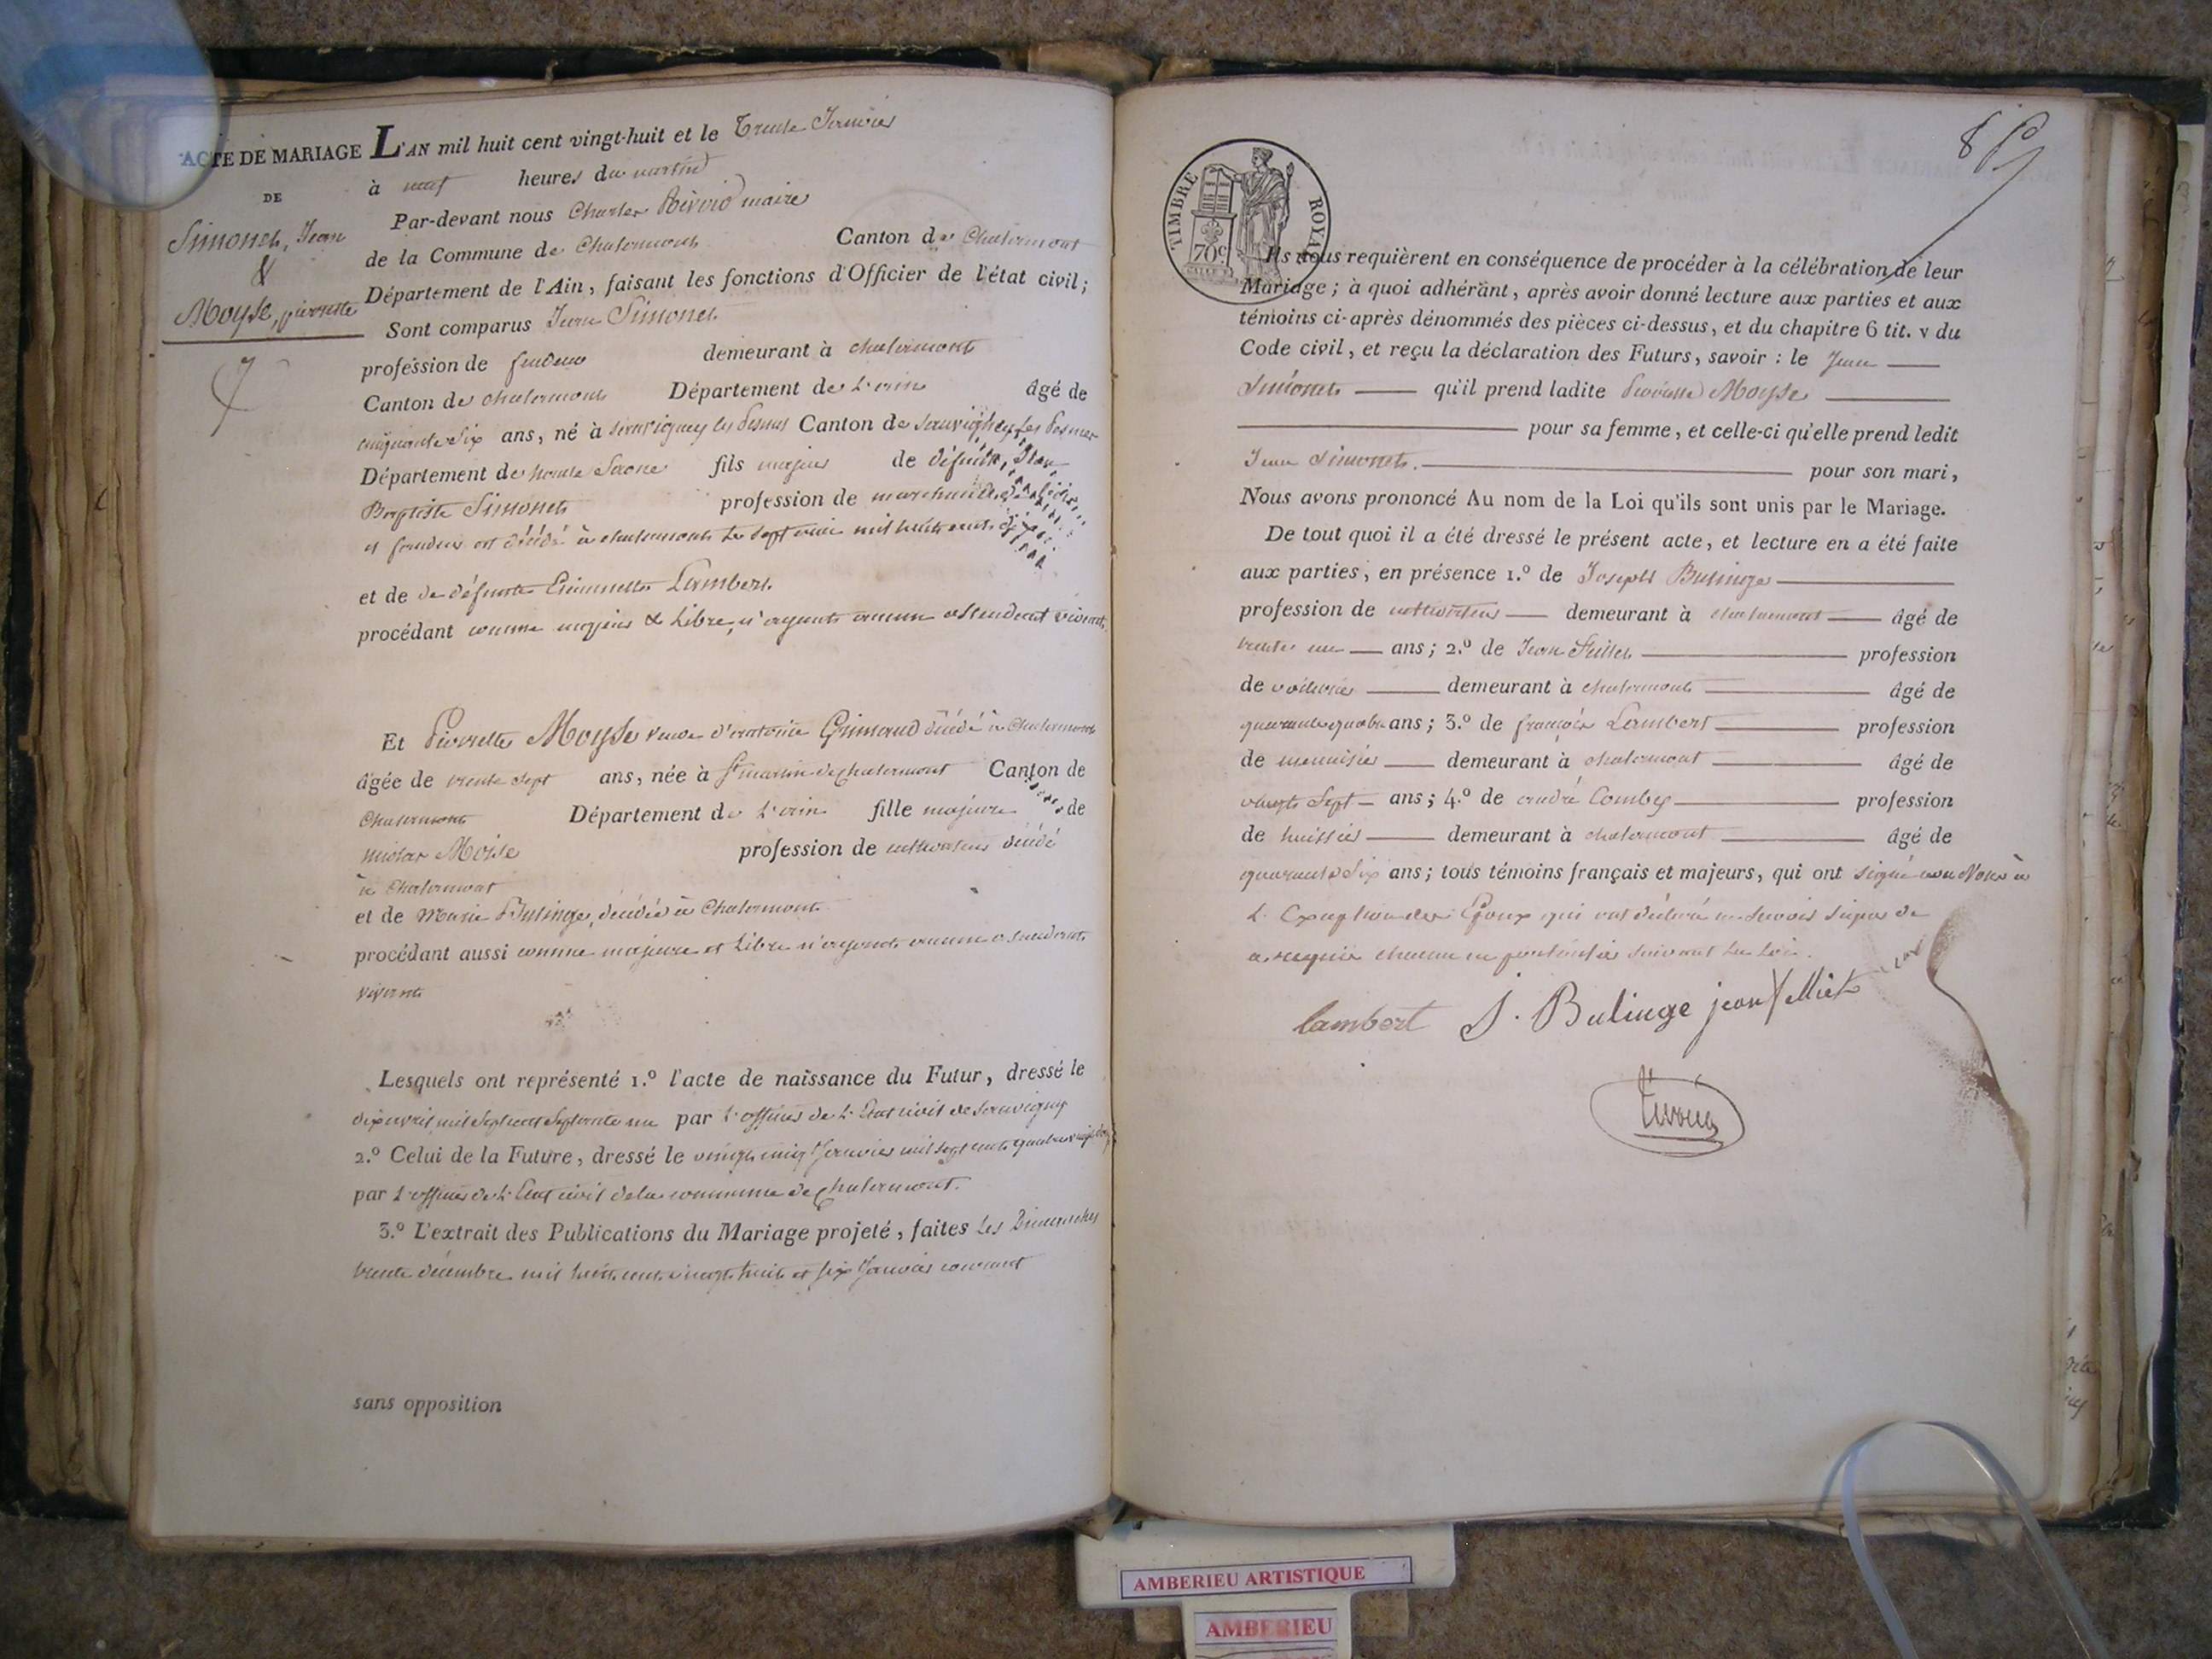 ACTE DE MARIAGE
DE
Simonet, Jean
&
Moyse, pierrette
L'AN mil huit cent vingt-huit et le Trente Janvier
à neuf heures du matin
Par-devant nous Charles maire
de la Commune de Chalamont Canton de Chalamont
Département de l'Ain, faisant les fonctions d'Officier de l'état civil;
Sont comparus Jean Simonet
profession de fondeur demeurant à chalamont
Canton de chalamont Département de L'ain âgé de
cinquante Six ans, né à Canton de
Département de haute Saone fils majeur de défunt, Jean
Baptiste Simonet profession de marchand
et fondeur est décédé à chalamont Le Sept mil huit cent
et de de défunte Lambert.
procédant comme majeur & Libre, n'ayant aucun assendant vivant.
Et Pierrette Moyse veuve d'antoine Grimaud décédé à Chalamont
âgée de trente Sept ans, née à St martin de Chalamont Canton de
Chalamont Département de L'ain fille majeure de
nicolas Moïse profession de cultivateur décédé
à Chalamont
et de Marie Bulinge, décédée à Chalamont
procédant aussi comme majeure et Libre n'ayant aucun assendant
vivant
Lesquels ont représenté 1.º l'acte de naissance du Futur, dressé le
dix avril mil Sept cent Septante un par L'officier de L'Etat civil de Sauvigney
2.º Celui de la Future, dressé le vingt cinq Janvier mil Sept cent quatre
par L'officier de L'Etat civil de la commune de Chalamont.
3.º L'extrait des Publications du Mariage projeté, faites Les Dimanches
trente décembre mil huit cent vingt huit et Six Janvier courant
sans opposition
8
TIMBRE ROYAL
70c
Ils nous requièrent en conséquence de procéder à la célébration de leur
Mariage; à quoi adhérant, après avoir donné lecture aux parties et aux
témoins ci-après dénommés des pièces ci-dessus, et du chapitre 6 tit. v du
Code civil, et reçu la déclaration des Futurs, savoir : le Jean
Simonet qu'il prend ladite Pierrette Moyse
pour sa femme, et celle-ci qu'elle prend ledit
Jean Simonet. pour son mari,
Nous avons prononcé Au nom de la Loi qu'ils sont unis par le Mariage.
De tout quoi il a été dressé le présent acte, et lecture en a été faite
aux parties, en présence 1.º de Joseph Bulinge
profession de cultivateur demeurant à chalamont âgé de
trente un ans; 2.º de Jean profession
de voiturier demeurant à chalamont âgé de
quarante quatre ans; 3.º de françois Lambert profession
de menuisier demeurant à chalamont âgé de
vingt Sept ans; 4.º de andré Comby profession
de huissier demeurant à chalamont âgé de
quarante Six ans; tous témoins français et majeurs, qui ont signé avec Nous à
L'Exception des Epoux qui ont déclaré ne Savoir Signer de
ce requis chacun Suivant La Loi.
lambert J. Bulinge jean
AMBERIEU ARTISTIQUE
AMBERIEU